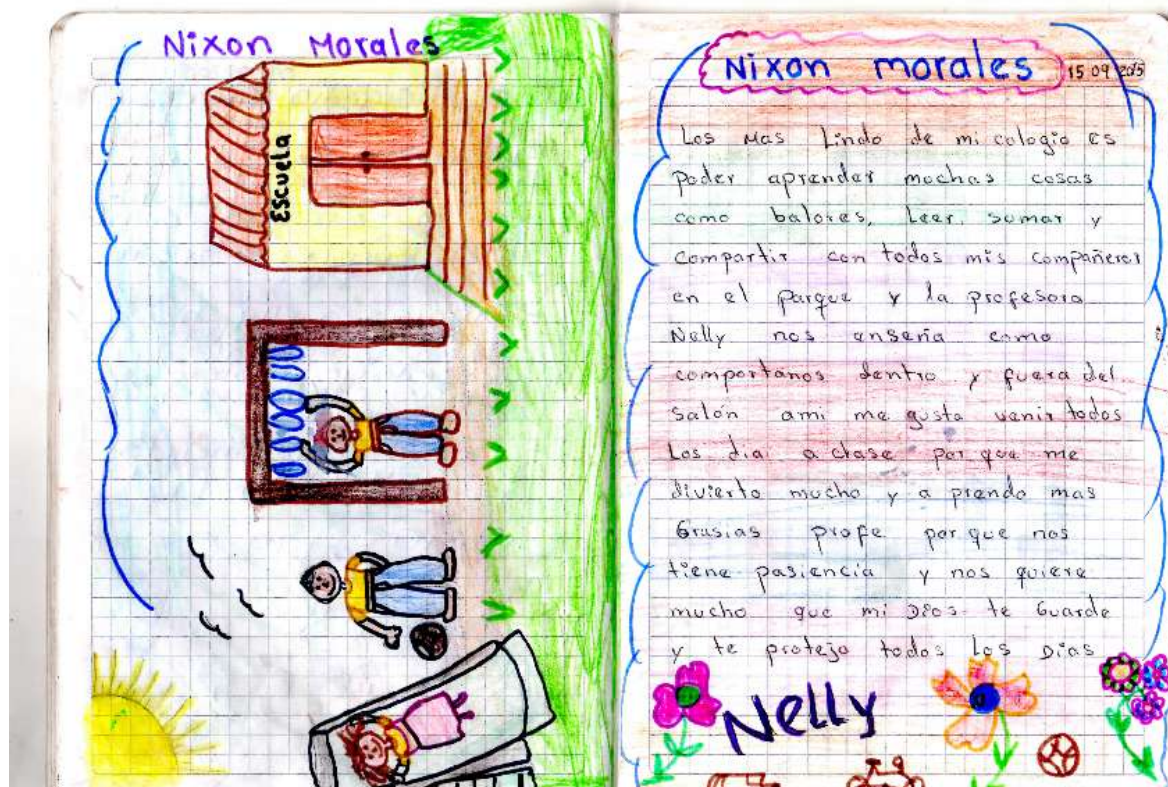 Nixon Morales
Escuela
Nixon morales
15 09 2015
Los Mas Lindo de mi cologio es
Poder aprender muchas cosas
como balores, Leer, sumar y
compartir con todos mis compañeros
en el parque y la profesora
Nelly nos enseña como
comportanos dentro y fuera del
salón ami me gusta venir todos
Los dia a clase por que me
divierto mucho y a prendo mas
Grasias profe por que nos
tiene pasiencia y nos quiere
mucho que mi Dios te Guarde
y te proteja todos Los Dias
Nelly